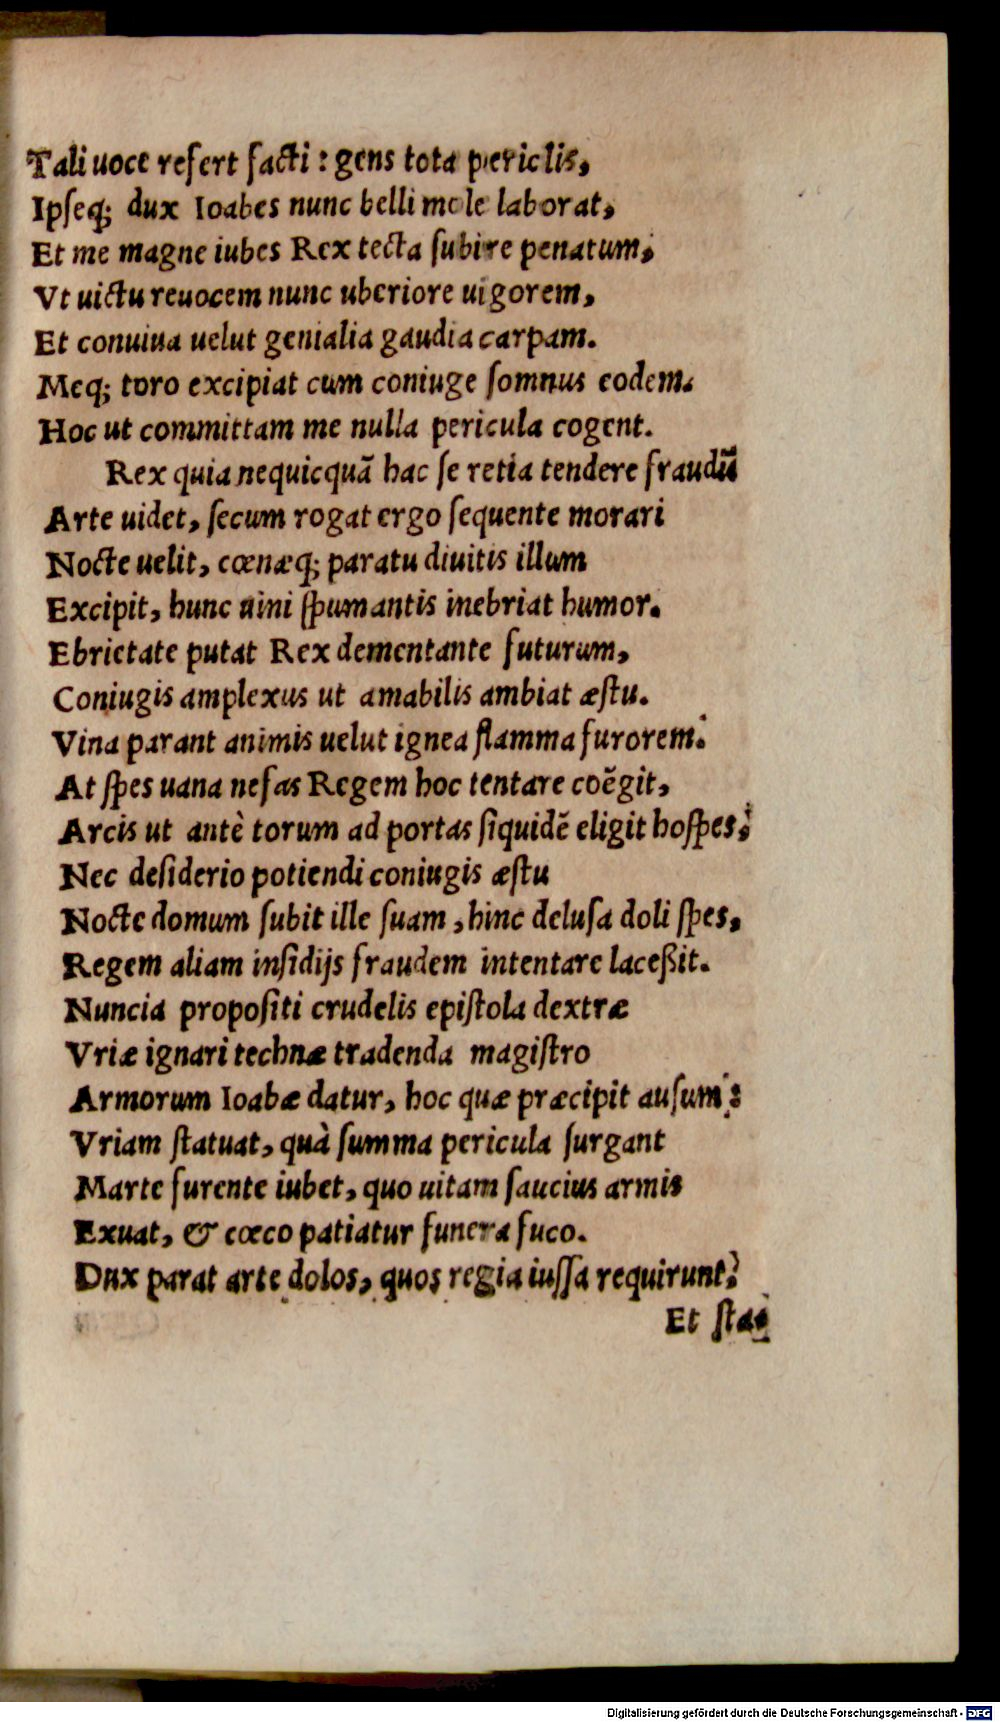 Tali uoce refert facti : gens tota periclis,
Ipseq; dux Ioabes nunc belli mole laborat,
Et me magne iubes Rex tecta subire penatum,
Vt uictu reuocem nunc uberiore uigorem,
Et conuiua uelut genialia gaudia carpam.
Meq; toro excipiat cum coniuge somnus eodem.
Hoc ut committam me nulla pericula cogent.
Rex quia nequicquã hac se retia tendere fraudũ
Arte uidet, secum rogat ergo sequente morari
Nocte uelit, cœnæq; paratu diuitis illum
Excipit, hunc uini spumantis inebriat humor.
Ebrietate putat Rex dementante futurum,
Coniugis amplexus ut amabilis ambiat æstu.
Vina parant animis uelut ignea flamma furorem.
At spes uana nefas Regem hoc tentare coẽgit,
Arcis ut antè torum ad portas siquidẽ eligit hospes,
Nec desiderio potiendi coniugis æstu
Nocte domum subit ille suam, hinc delusa doli spes,
Regem aliam insidijs fraudem intentare laceßit.
Nuncia propositi crudelis epistola dextræ
Vriæ ignari technæ tradenda magistro
Armorum Ioabæ datur, hoc quæ præcipit ausum:
Vriam statuat, quà summa pericula surgant
Marte furente iubet, quo uitam saucius armis
Exuat, & cœco patiatur funera fuco.
Dux parat arte dolos, quos regia iussa requirunt,
Et stat
Digitalisierung gefördert durch die Deutsche Forschungsgemeinschaft - DFG